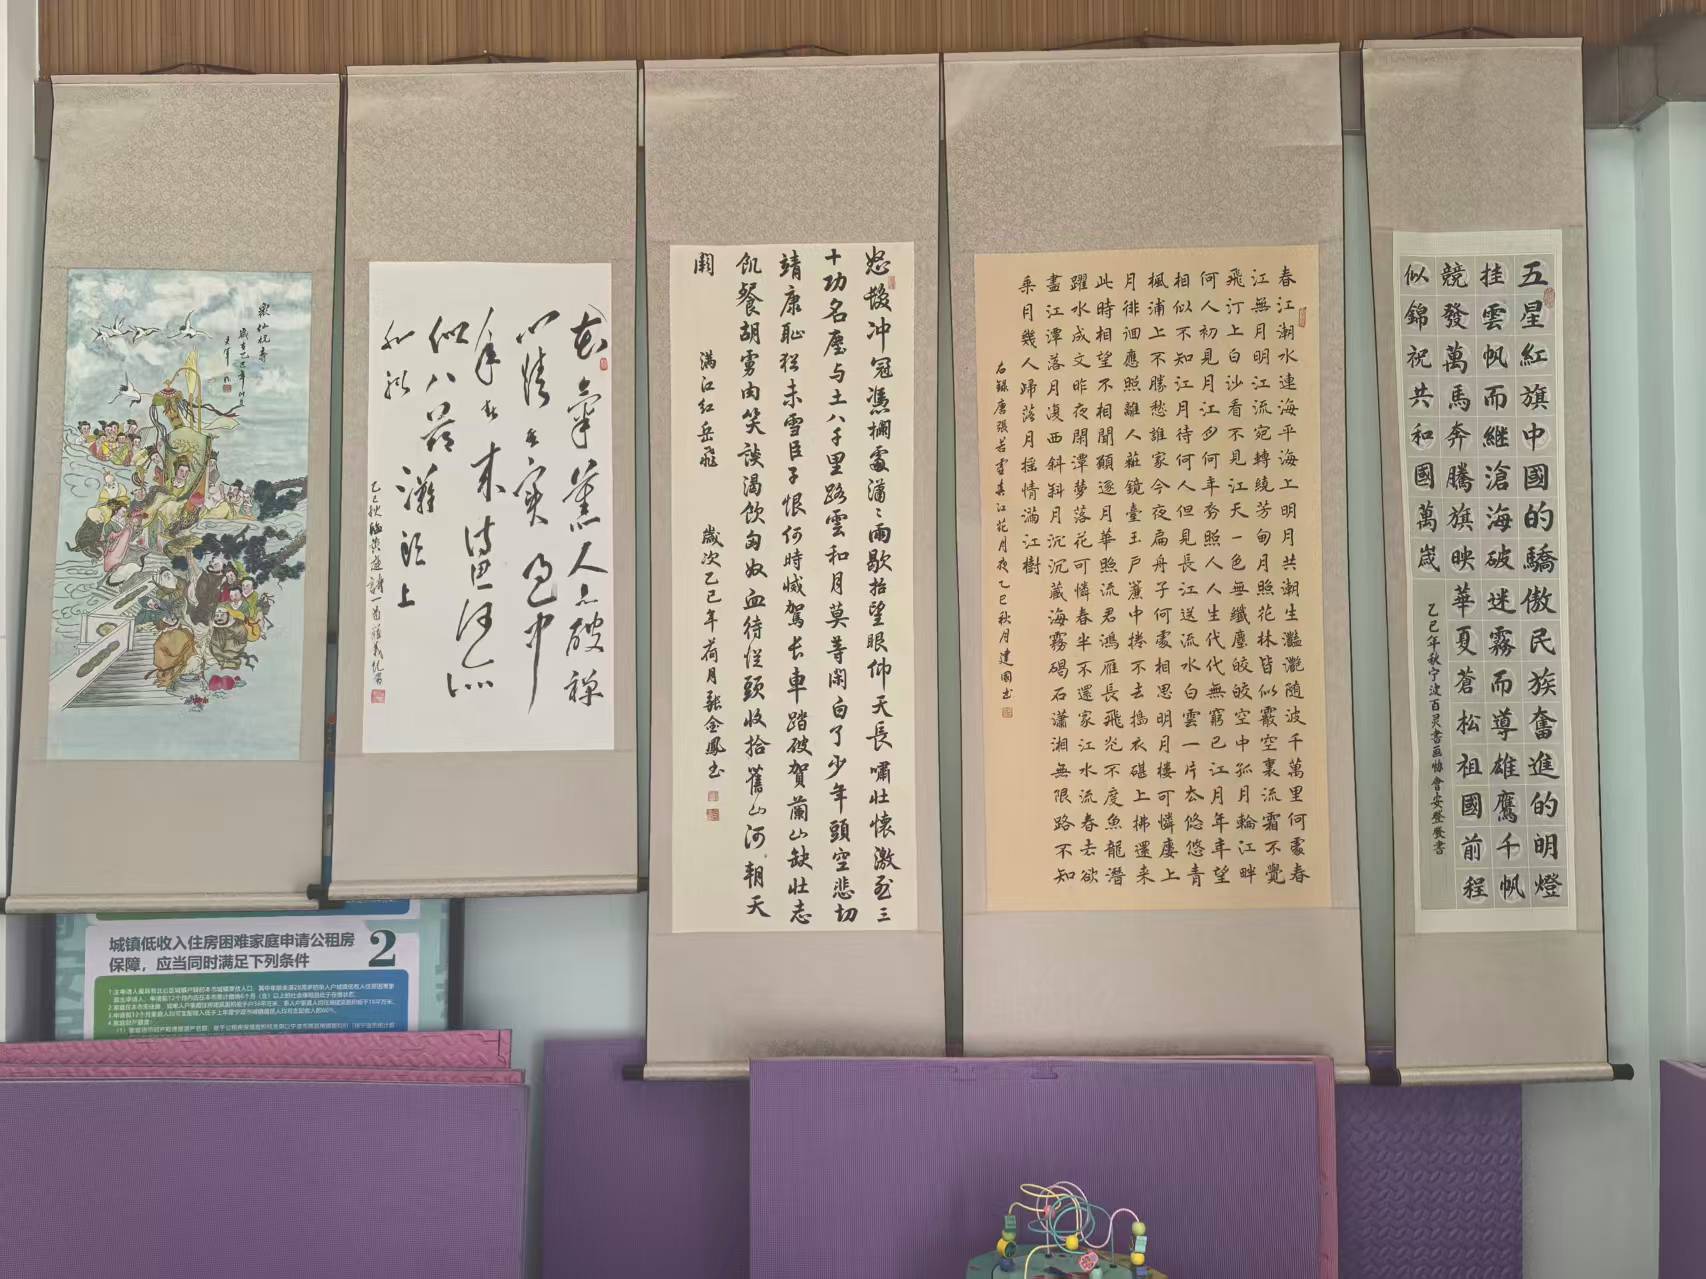 五星紅旗中國的驕傲民族奮進的明燈
挂雲帆而繼滄海破迷霧而導雄鷹千帆
競發萬馬奔騰旗映華夏蒼松祖國前程
似錦祝共和國萬歲
乙巳年秋宁波百灵書画協會安登發書
春江潮水連海平海上明月共潮生灩灩随波千萬里何處春
江無月明江流宛轉繞芳甸月照花林皆似霰空裏流霜不覺
飛汀上白沙看不見江天一色無纖塵皎皎空中孤月輪江畔
何人初見月江月何年初照人人生代代無窮已江月年年望
相似不知江月待何人但見長江送流水白雲一片去悠悠青
楓浦上不勝愁誰家今夜扁舟子何處相思明月楼可憐廔上
月徘徊應照離人莊鏡臺玉户簾中捲不去搗衣碪上拂還来
此時相望不相聞願逐月華照流君鴻雁長飛光不度魚龍潛
躍水成文昨夜閑潭夢落花可憐春半不還家江水流春去欲
盡江潭落月復西斜斜月沉沉藏海霧碣石瀟湘無限路不知
乘月幾人歸落月摇情满江樹
右録唐張若虚春江花月夜乙巳秋月建國书
怒髮冲冠憑欄處瀟瀟雨歇抬望眼仰天長嘯壮懷激烈三
十功名塵与土八千里路雲和月莫等闲白了少年頭空悲切
靖康耻猶未雪臣子恨何時憾駕长車踏破賀蘭山缺壮志
飢餐胡虜肉笑談渴飲匈奴血待從頭收拾舊山河朝天
闕
满江红岳飛
歲次乙巳年荷月張金鳳书
花氣薰人欲破禪
心情其實過中
年春来詩思何所
似八节灘頭上
水船
乙巳秋
黄庭堅詩一首
眾仙祝壽
歲在乙巳年秋月
城镇低收入住房困难家庭申请公租房
保障，应当同时满足下列条件
2